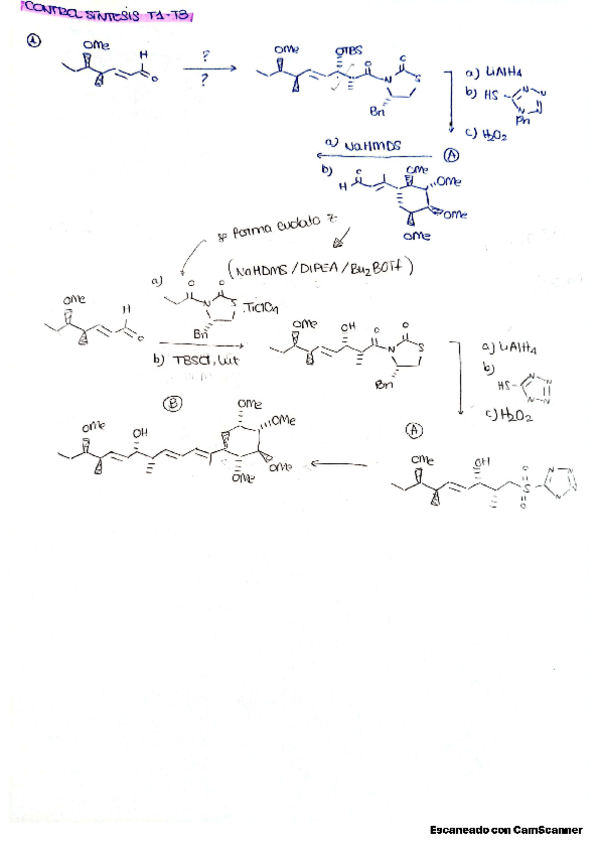 CONTROL SÍNTESIS T1-T3
①
OMe H O
?
?
OMe OTBS O O N S Bn
a) LiAlH4
b) HS N N N N Ph
c) H2O2
Ⓐ
a) NaHMDS
b) H O OMe OMe OMe OMe
se forma enolato Z
(NaHDMS / DIPEA / Bu2BOTf)
a) O O N S Bn .TiCl4
OMe H O
b) TBSCl, Lut
OMe OH O O N S Bn
a) LiAlH4
b) HS N N N N
c) H2O2
Ⓑ
OMe OH OMe OMe OMe OMe
Ⓐ
OMe OH O S O N N N N
Escaneado con CamScanner